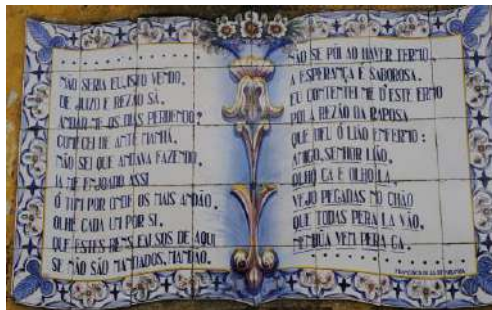 . . . . . . . . . . . . . .
NÃO SERIA EU, ISTO VENDO,
DE JUIZO E REZÃO SÃ,
ANDAR-ME OS DIAS PERDENDO?
COMECEI DE ANTE MANHÃ,
NÃO SEI QUE ANDAVA FAZENDO.
JA ME ENJOADO ASSI
Ó TOM POR ONDE OS MAIS ANDÃO,
OLHE CADA UM POR SI,
QUE ESTES BENS FALSOS DE AQUI
SE NÃO SÃO MANDADOS, MANDÃO.
NÃO SE POI AO HAVER TERMO,
A ESPERANÇA É SABOROSA.
EU CONTENTEI ME D'ESTE ERMO
POLA REZÃO DA RAPOSA
QUE DEU Ó LIÃO ENFERMO:
AMIGO, SENHOR LIÃO,
OLHO CA E OLHO LA,
VEJO PEGADAS NO CHÃO
QUE TODAS PERA LA VÃO,
NENHŨA VEM PERA CA.
. . . . . . . . . . . . . .
FRANCISCO DE SÁ DE MIRANDA